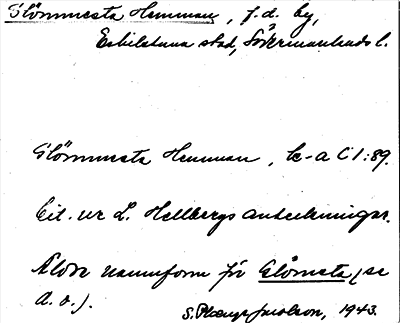 Glömmesta Hemman, f.d. by,
Eskilstuna stad, Södermanlands l.
Glömmesta Hemman, k-a C I:89.
Cit. ur L. Hellbergs anteckningar.
Äldre namnform för Glömsta (se
d. o.).
S. 1943.